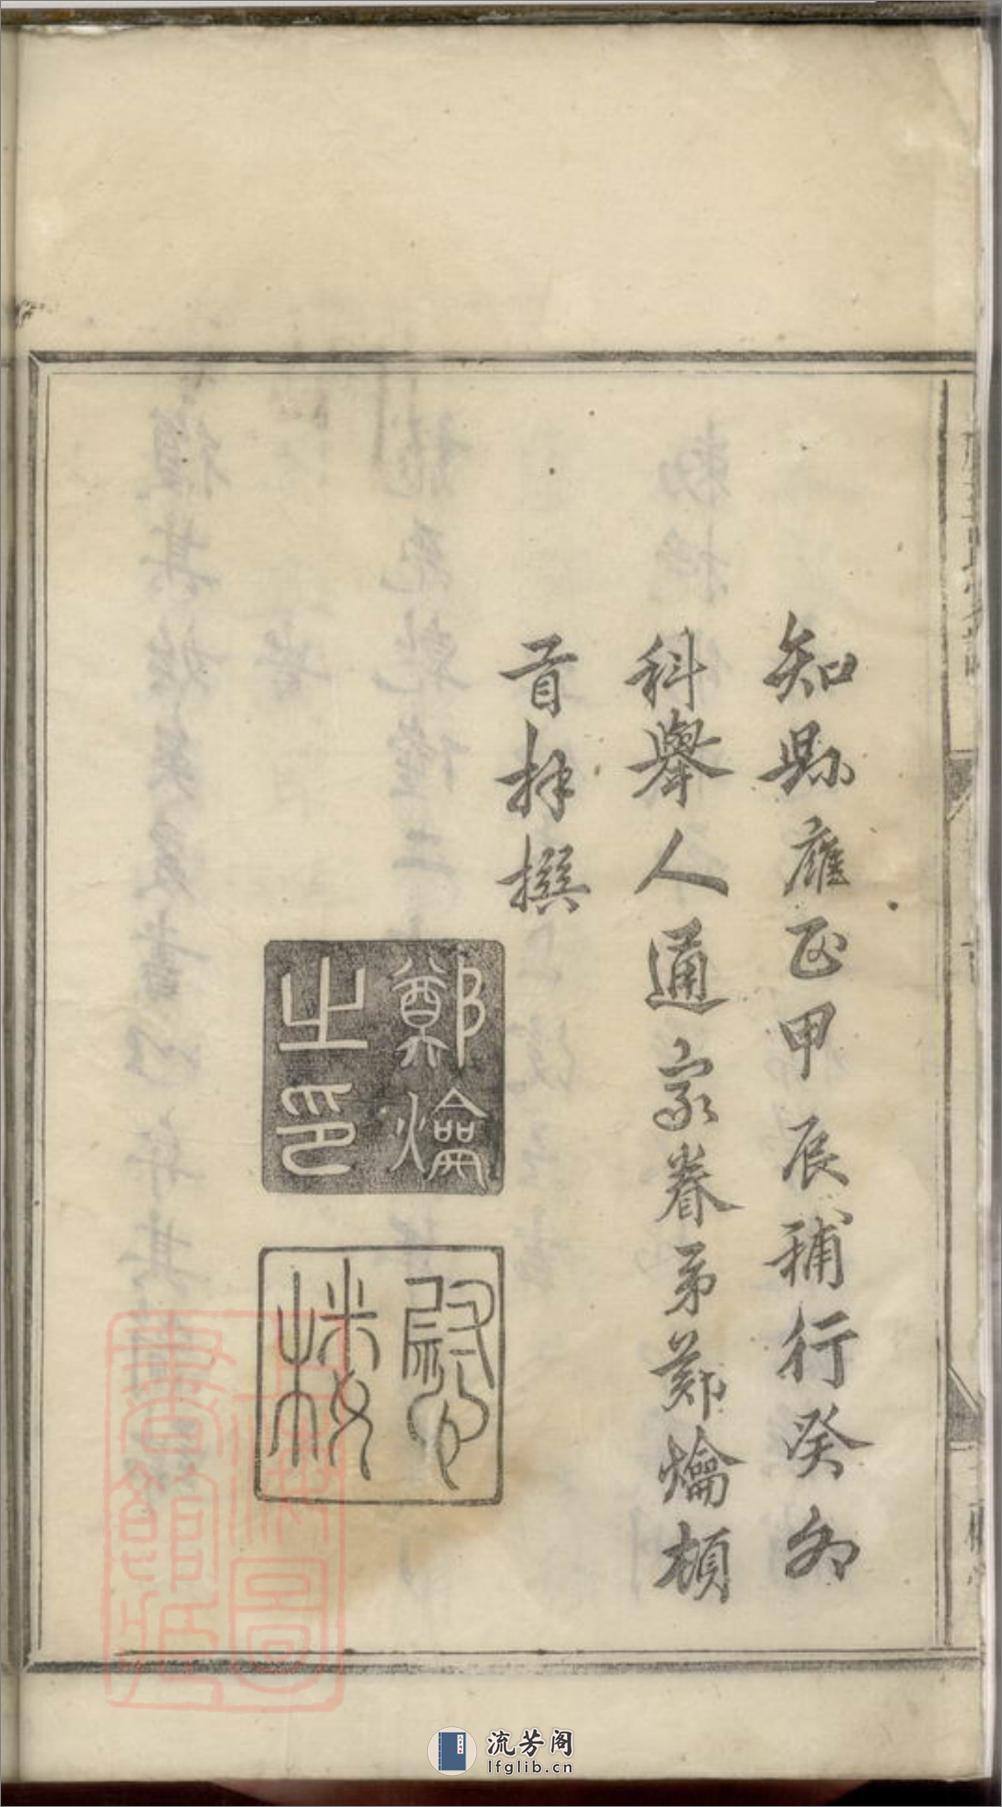 知縣雍正甲辰補行癸卯
科舉人通家眷弟鄭爚頓
首拜撰
鄭爚
之印
上海圖
書館藏
流芳阁
lfglib.cn